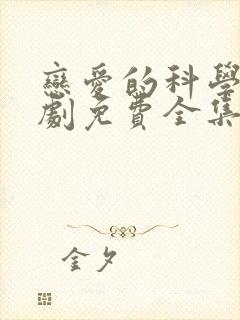 戀愛的科學
劇免費全集
金夕